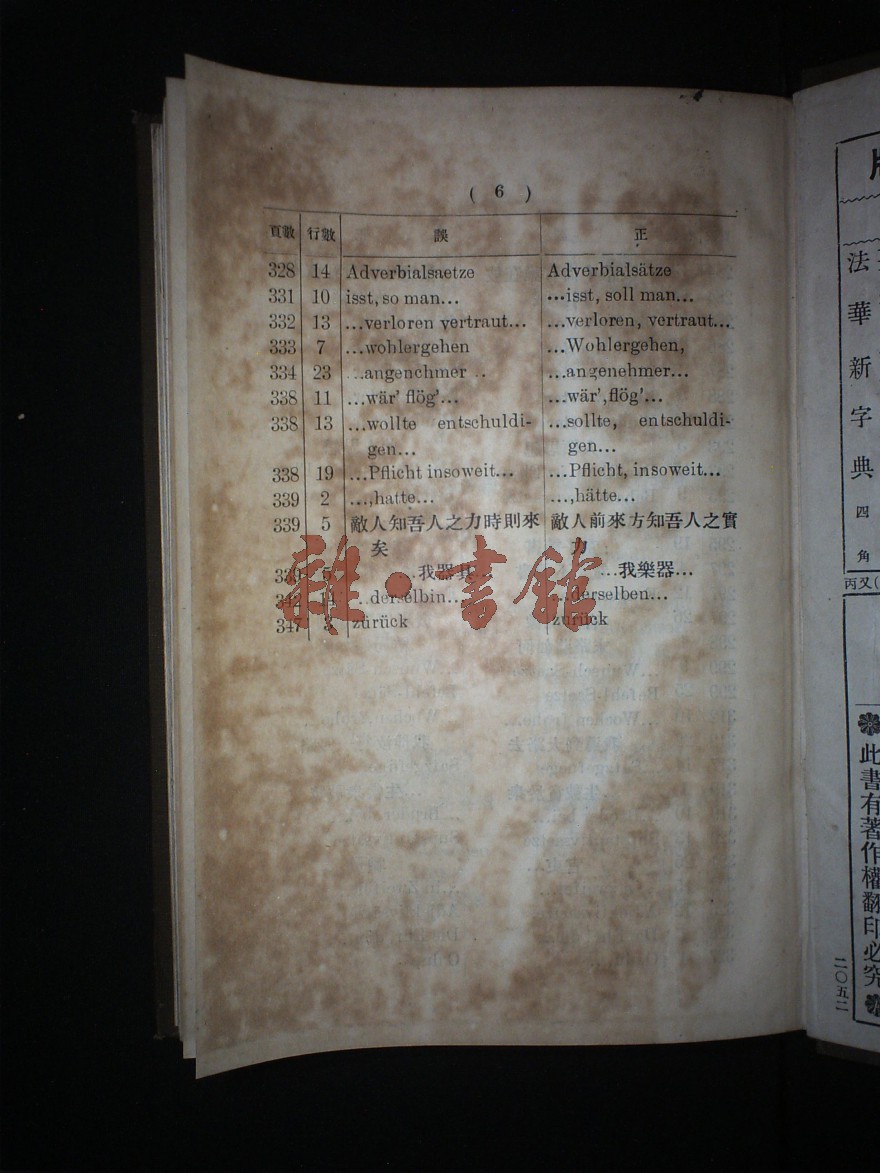 ( 6 )
頁數 行數 誤 正
328 14 Adverbialsaetze Adverbialsätze
331 10 isst, so man... ...isst, soll man...
332 13 ...verloren vertraut... ...verloren, vertraut...
333 7 ...wohlergehen ...Wohlergehen,
334 23 ...angenchmer .. ...angenehmer...
338 11 ...wär' flög'... ...wär', flög'...
338 13 ...wollte entschuldi- ...sollte, entschuldi-
gen... gen...
338 19 ...Pflicht insoweit... ...Pflicht, insoweit...
339 2 ...,hatte... ...,hätte...
339 5 敵人知吾人之力時則來 敵人前來方知吾人之實
矣 力
339 5 ...我器其... ...我樂器...
342 14 ...derselbin... ...derselben...
347 3 zürück zurück
雜·書館
法華新字典
四角
丙又(
此書有著作權翻印必究
二〇五二